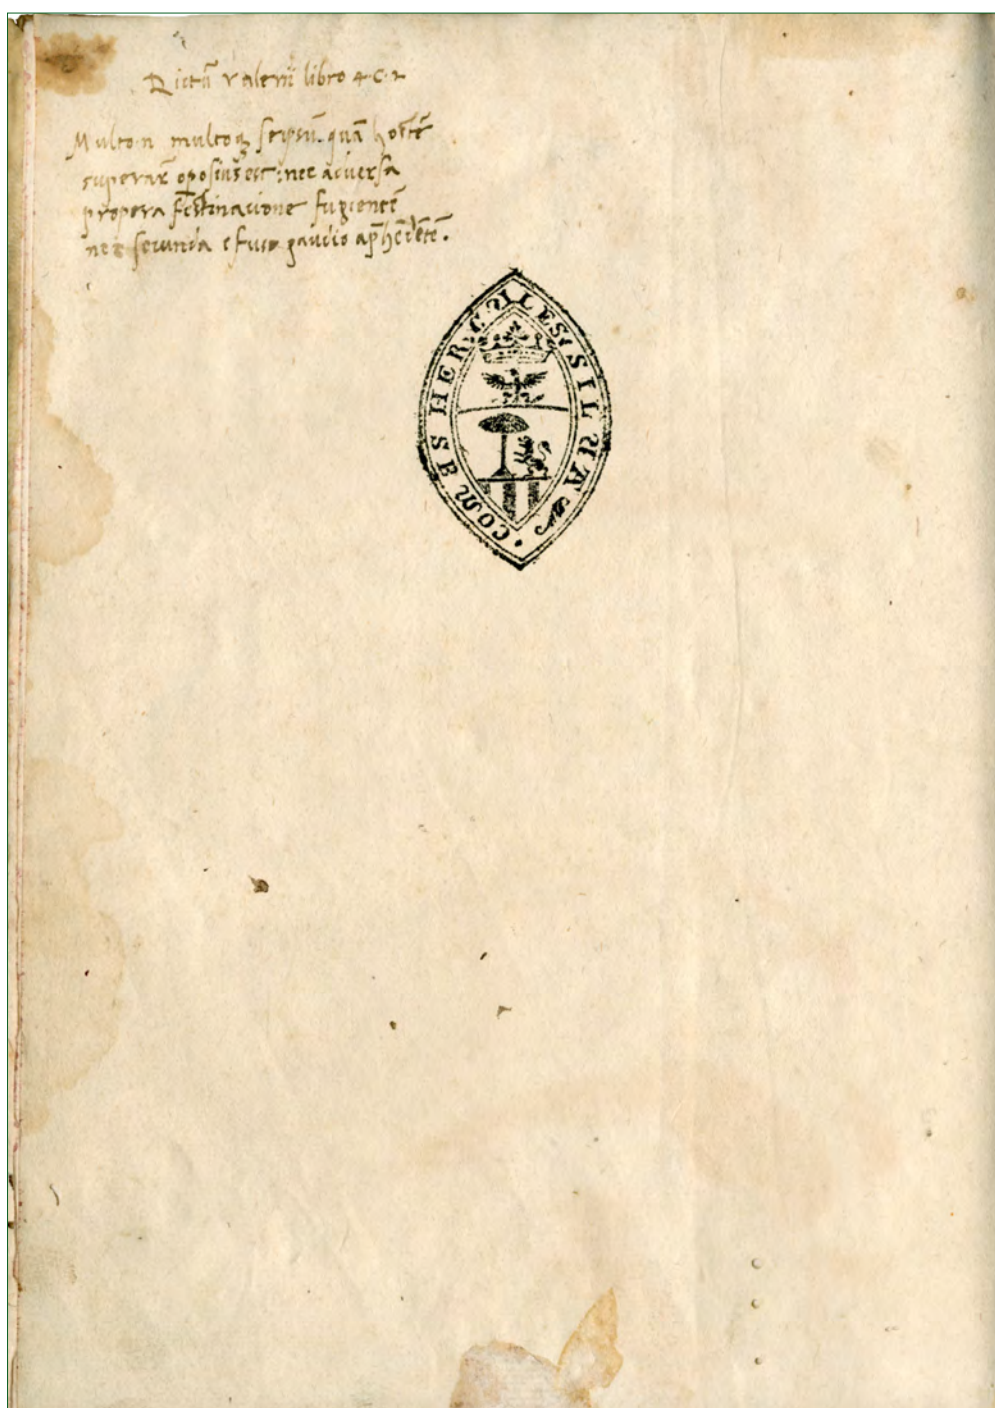 Dictū valerii libro 4 · c · 2
Multo n multoq seipsū quā hostē
superare oposius est : nec adversa
propera festinatione fugientē
nec secunda efuso gaudio apͥhēdētē .
COMES · HERCULES · SILVA ·